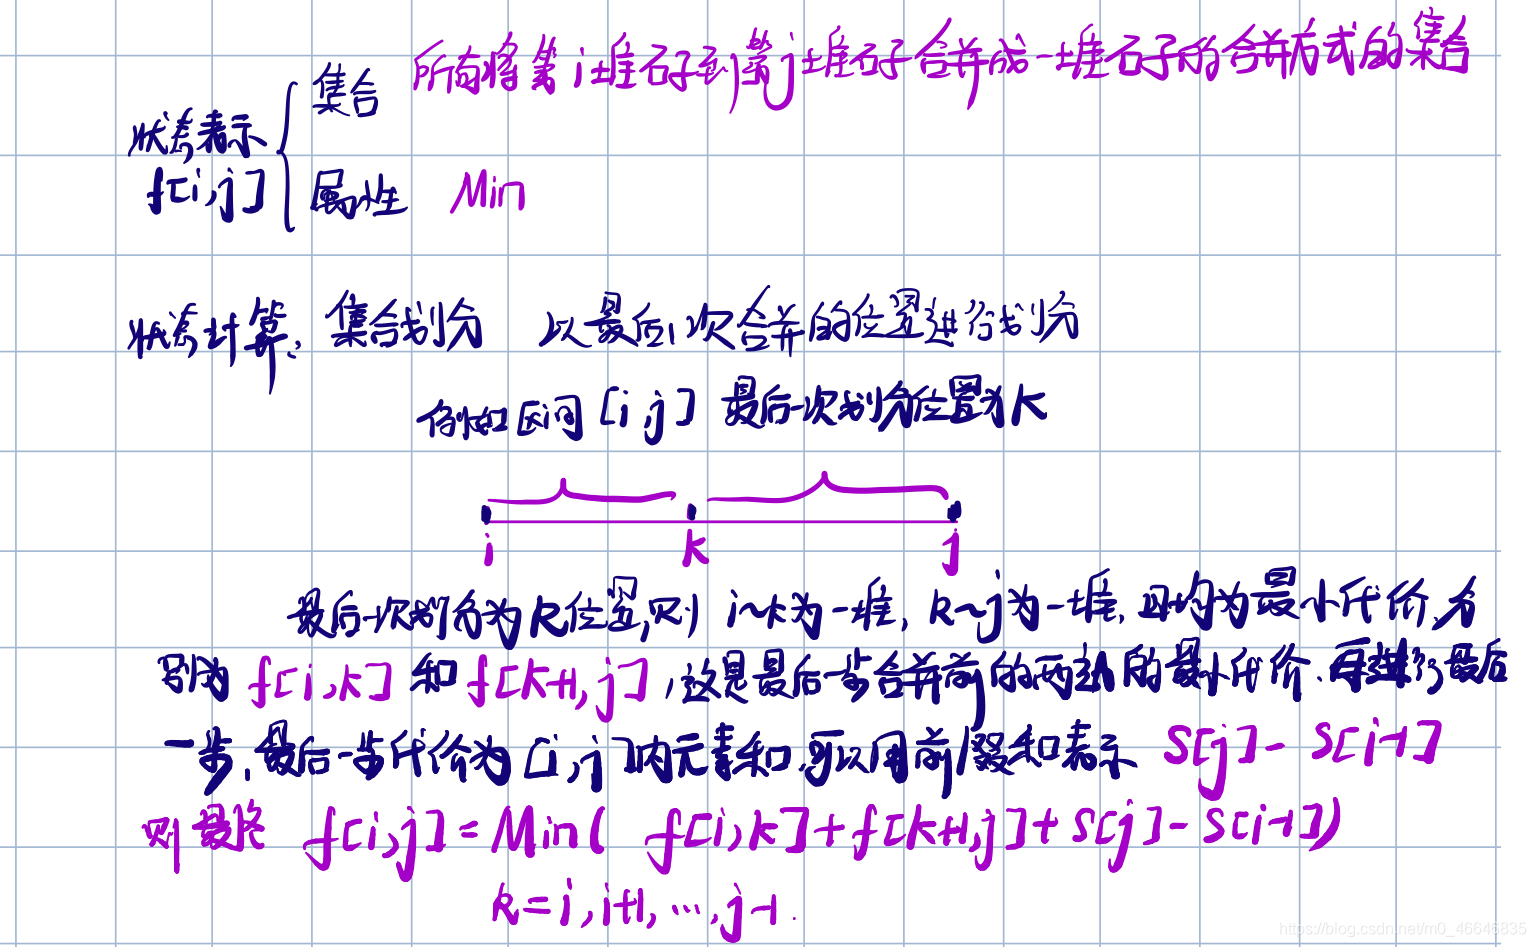 所有将第i堆石子到第j堆石子合并成一堆石子的合并方式的集合
集合
状态表示
f[i,j]
属性 Min
状态计算: 集合划分 以最后一次合并的位置进行划分
例如区间[i,j] 最后一次划分位置为k
i k j
最后一次划分为k位置,则i~k为一堆,k~j为一堆,且均为最小代价,分
别为f[i,k]和f[k+1,j],这是最后一步合并前的两边的最小代价.再进行最后
一步,最后一步代价为[i,j]内元素和,可以用前缀和表示 S[j]-S[i-1]
则最终 f[i,j]=Min( f[i,k]+f[k+1,j]+S[j]-S[i-1])
k=i,i+1,…,j-1.
https://blog.csdn.net/m0_46646835